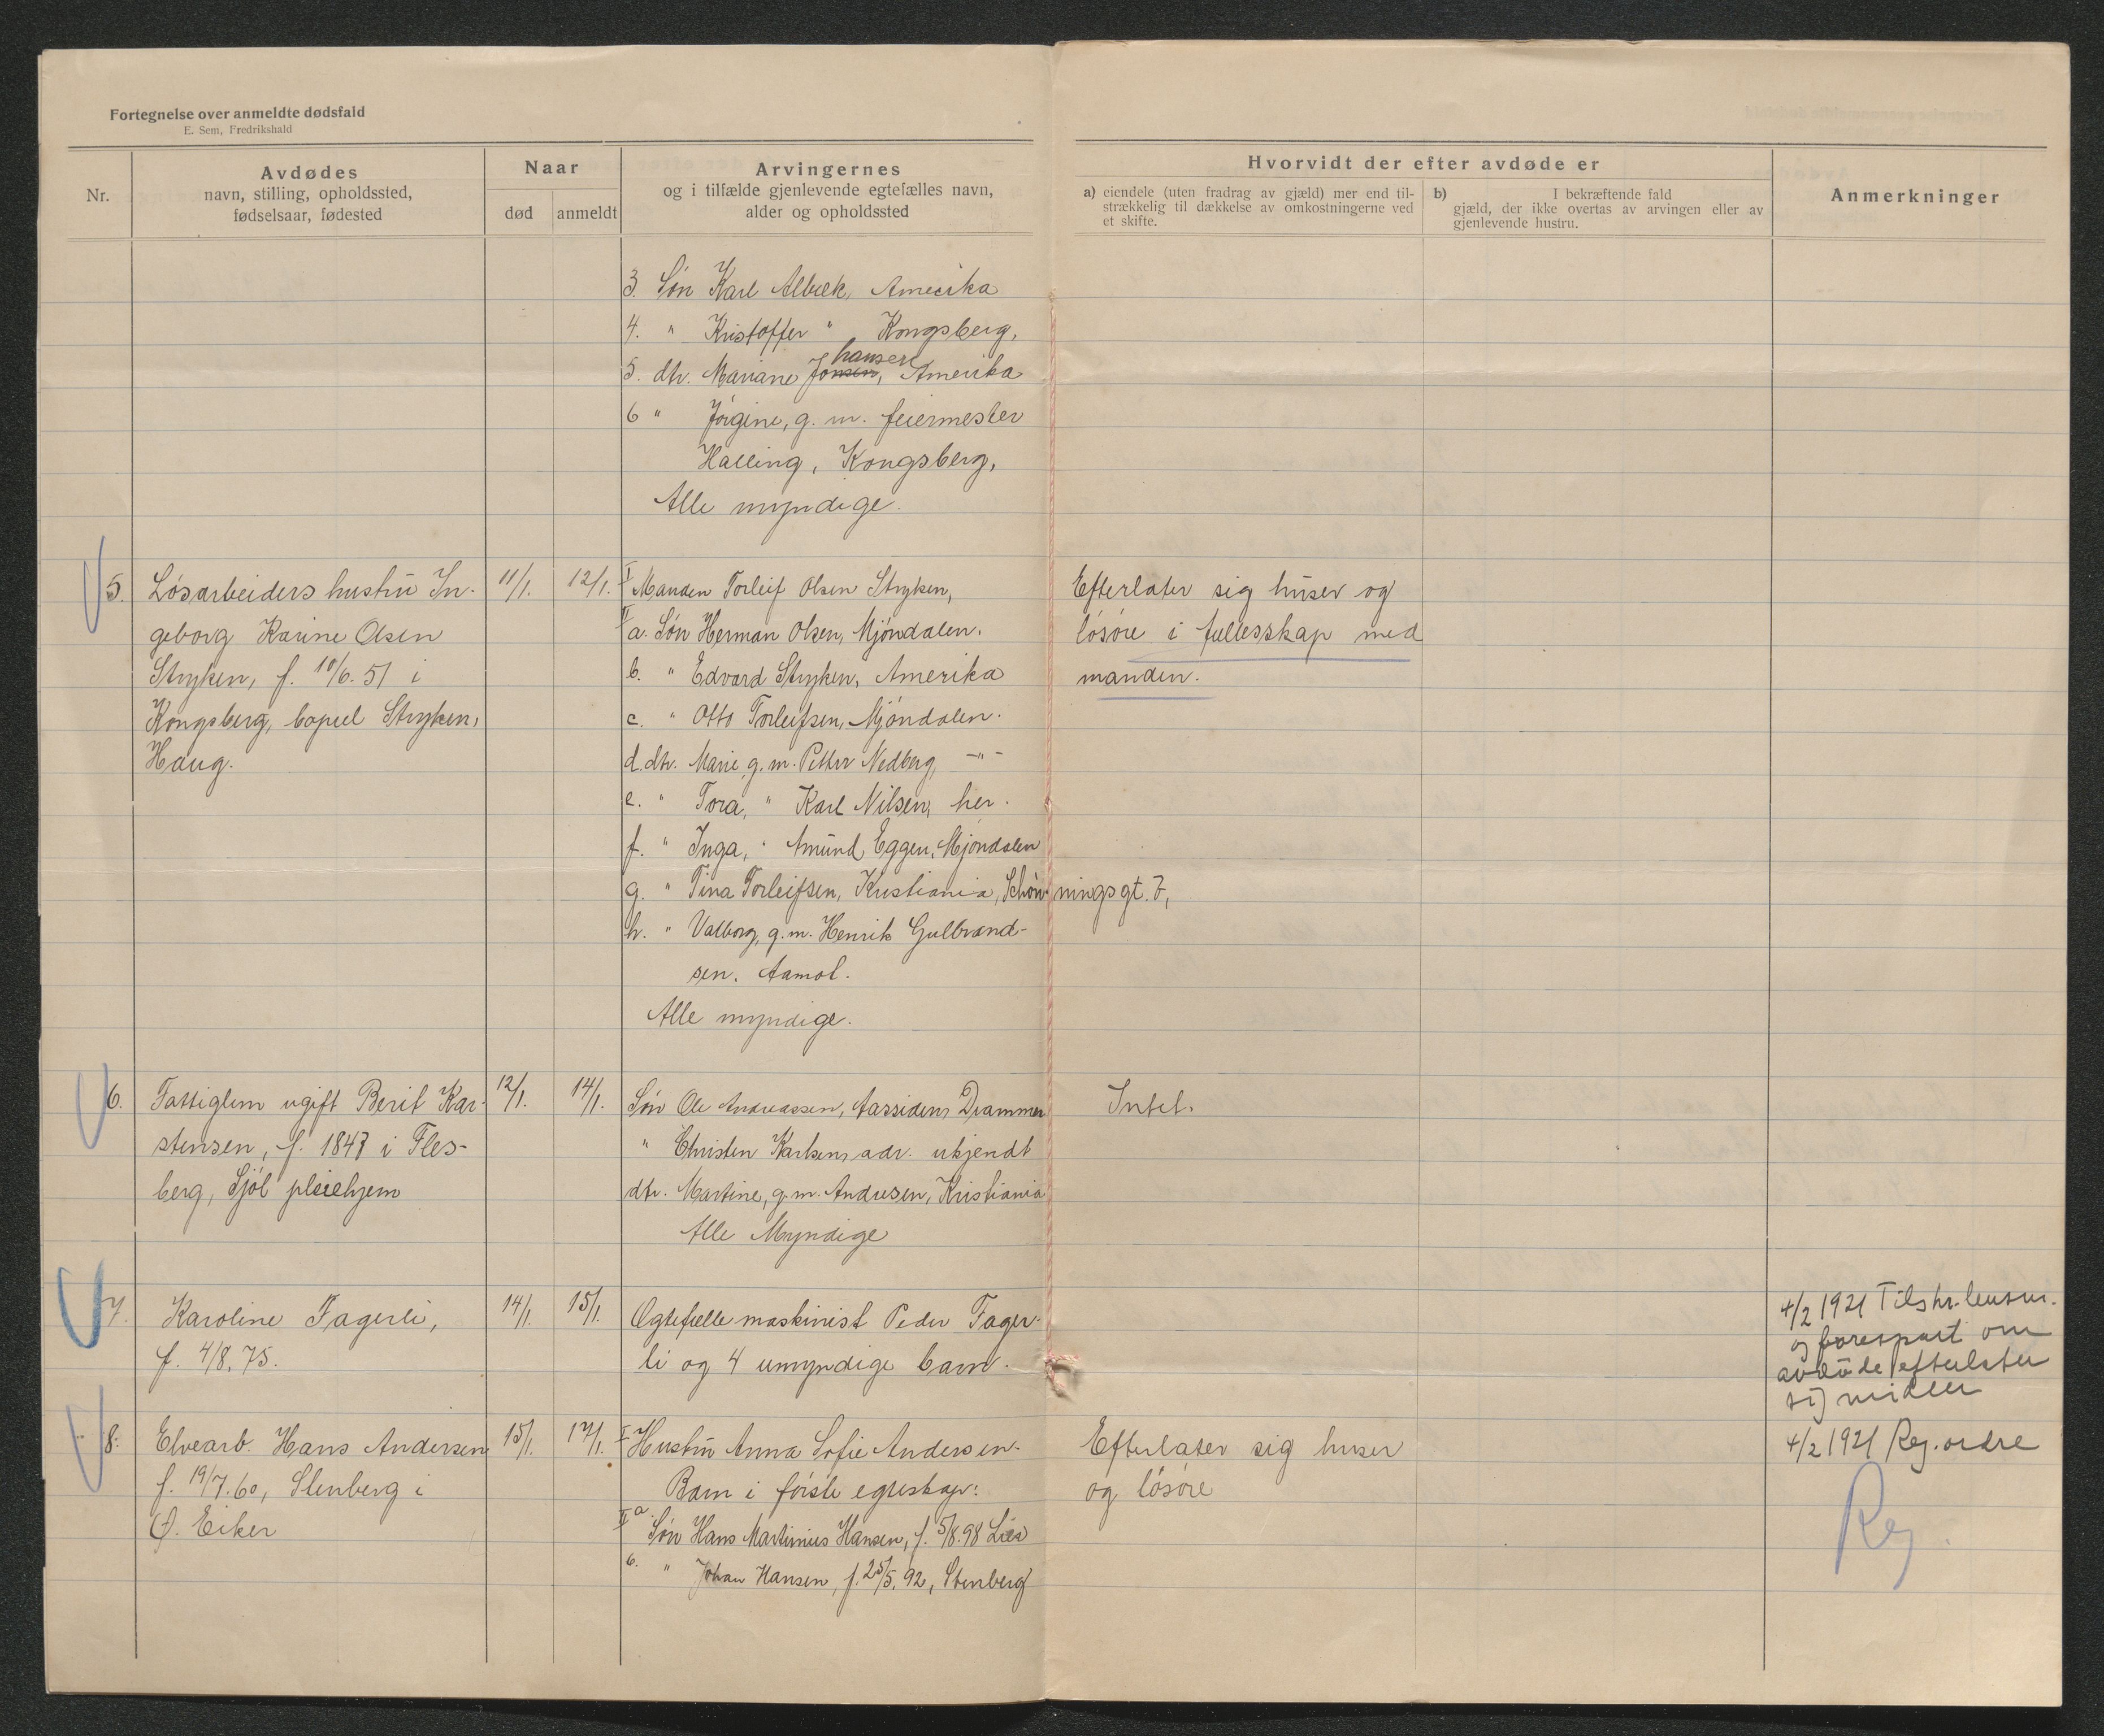 Fortegnelse over anmeldte dødsfald
E. Sem, Fredrikshald
Nr.
Avdødes
navn, stilling, opholdssted,
fødselsaar, fødested
Naar
død
anmeldt
Arvingernes
og i tilfælde gjenlevende egtefælles navn,
alder og opholdssted
Hvorvidt der efter avdøde er
a) eiendele (uten fradrag av gjæld) mer end til-
strækkelig til dækkelse av omkostningerne ved
et skifte.
b) I bekræftende fald
gjæld, der ikke overtas av arvingen eller av
gjenlevende hustru.
Anmerkninger
3. Søn Karl Albæk, Amerika
4. " Kristoffer " Kongsberg,
hansen
5. dtr. Mariane Jonsen, Amerika
6 " Jørgine, g. m. feiermester
Halling, Kongsberg,
Alle myndige.
5. Løsarbeiders hustru In-
geborg Karine Olsen
Stryken, f. 10/6. 51 i
Kongsberg, bopæl Stryken,
Haug.
11/1. 12/1.
I Manden Torleif Olsen Stryken,
II a. Søn Herman Olsen, Mjøndalen.
b. " Edvard Stryken, Amerika
c. " Otto Torleifsen, Mjøndalen.
d. dtr. Marie, g. m. Petter Nedberg, -"-
e. " Tora, " Karl Nilsen, her.
f. " Inga, " Amund Eggen, Mjøndalen
g. " Tina Torleifsen, Kristiania, Schøn-ningsgt. 7,
h. " Valborg, g. m. Henrik Gulbrand-
sen. Aamot.
Alle myndige.
Efterlater sig huser og
løsøre i fællesskap med
manden.
6. Fattiglem ugift Berit Kar-
stensen, f. 1847 i Fles-
berg, Sjøl pleiehjem
12/1. 14/1.
Søn Ole Andreassen, Aassiden, Drammen
" Christen Karlsen, adr. ukjendt
dtr. Martine, g. m. Andresen, Kristiania
Alle Myndige
Intet.
7. Karoline Fagerli,
f. 4/8. 75.
14/1. 15/1.
Egtefælle maskinist Peder Fager-
li og 4 umyndige barn.
4/2 1921 Tilskr. lensm.
og forespurt om
avdøde efterlater
sig midler
8. Elvearb. Hans Andersen
f. 19/7. 60, Stenberg i
Ø. Eiker
15/1. 17/1.
I Hustru Anna Sofie Andersen.
Barn i første egteskap:
II a. Søn Hans Martinius Hansen, f. 5/8. 98 Lier
b. " Johan Hansen, f. 25/5. 92, Stenberg
Efterlater sig huser
og løsøre
4/2 1921 Reg. ordre
Reg.